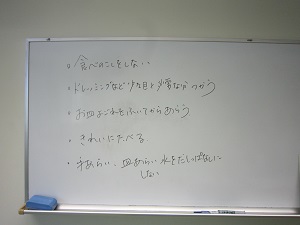 。食べのこしをしない
・ドレッシングなど少な目に
・お皿よごれをふいてからあらう
・きれいにたべる
・手あらい、皿あらい水をだしっぱなしに
しない